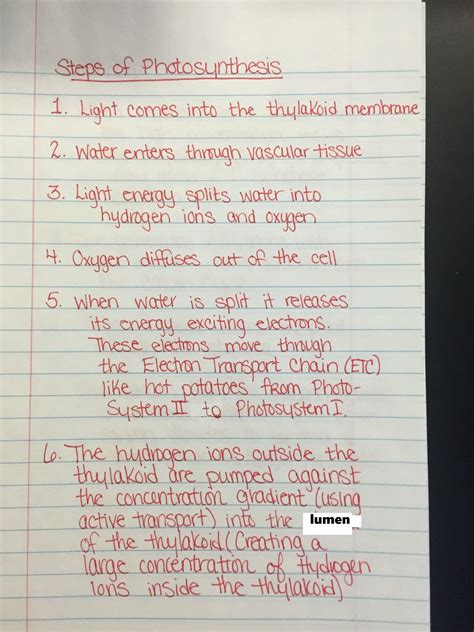 Steps of Photosynthesis
1. Light comes into the thylakoid membrane
2. Water enters through vascular tissue
3. Light energy splits water into
hydrogen ions and oxygen
4. Oxygen diffuses out of the cell
5. When water is split it releases
its energy exciting electrons.
These electrons move through
the Electron Transport Chain (ETC)
like hot potatoes from Photo-
System II to Photosystem I.
6. The hydrogen ions outside the
thylakoid are pumped against
the concentration gradient (using
active transport) into the lumen
of the thylakoid (Creating a
large concentration of Hydrogen
ions inside the thylakoid)